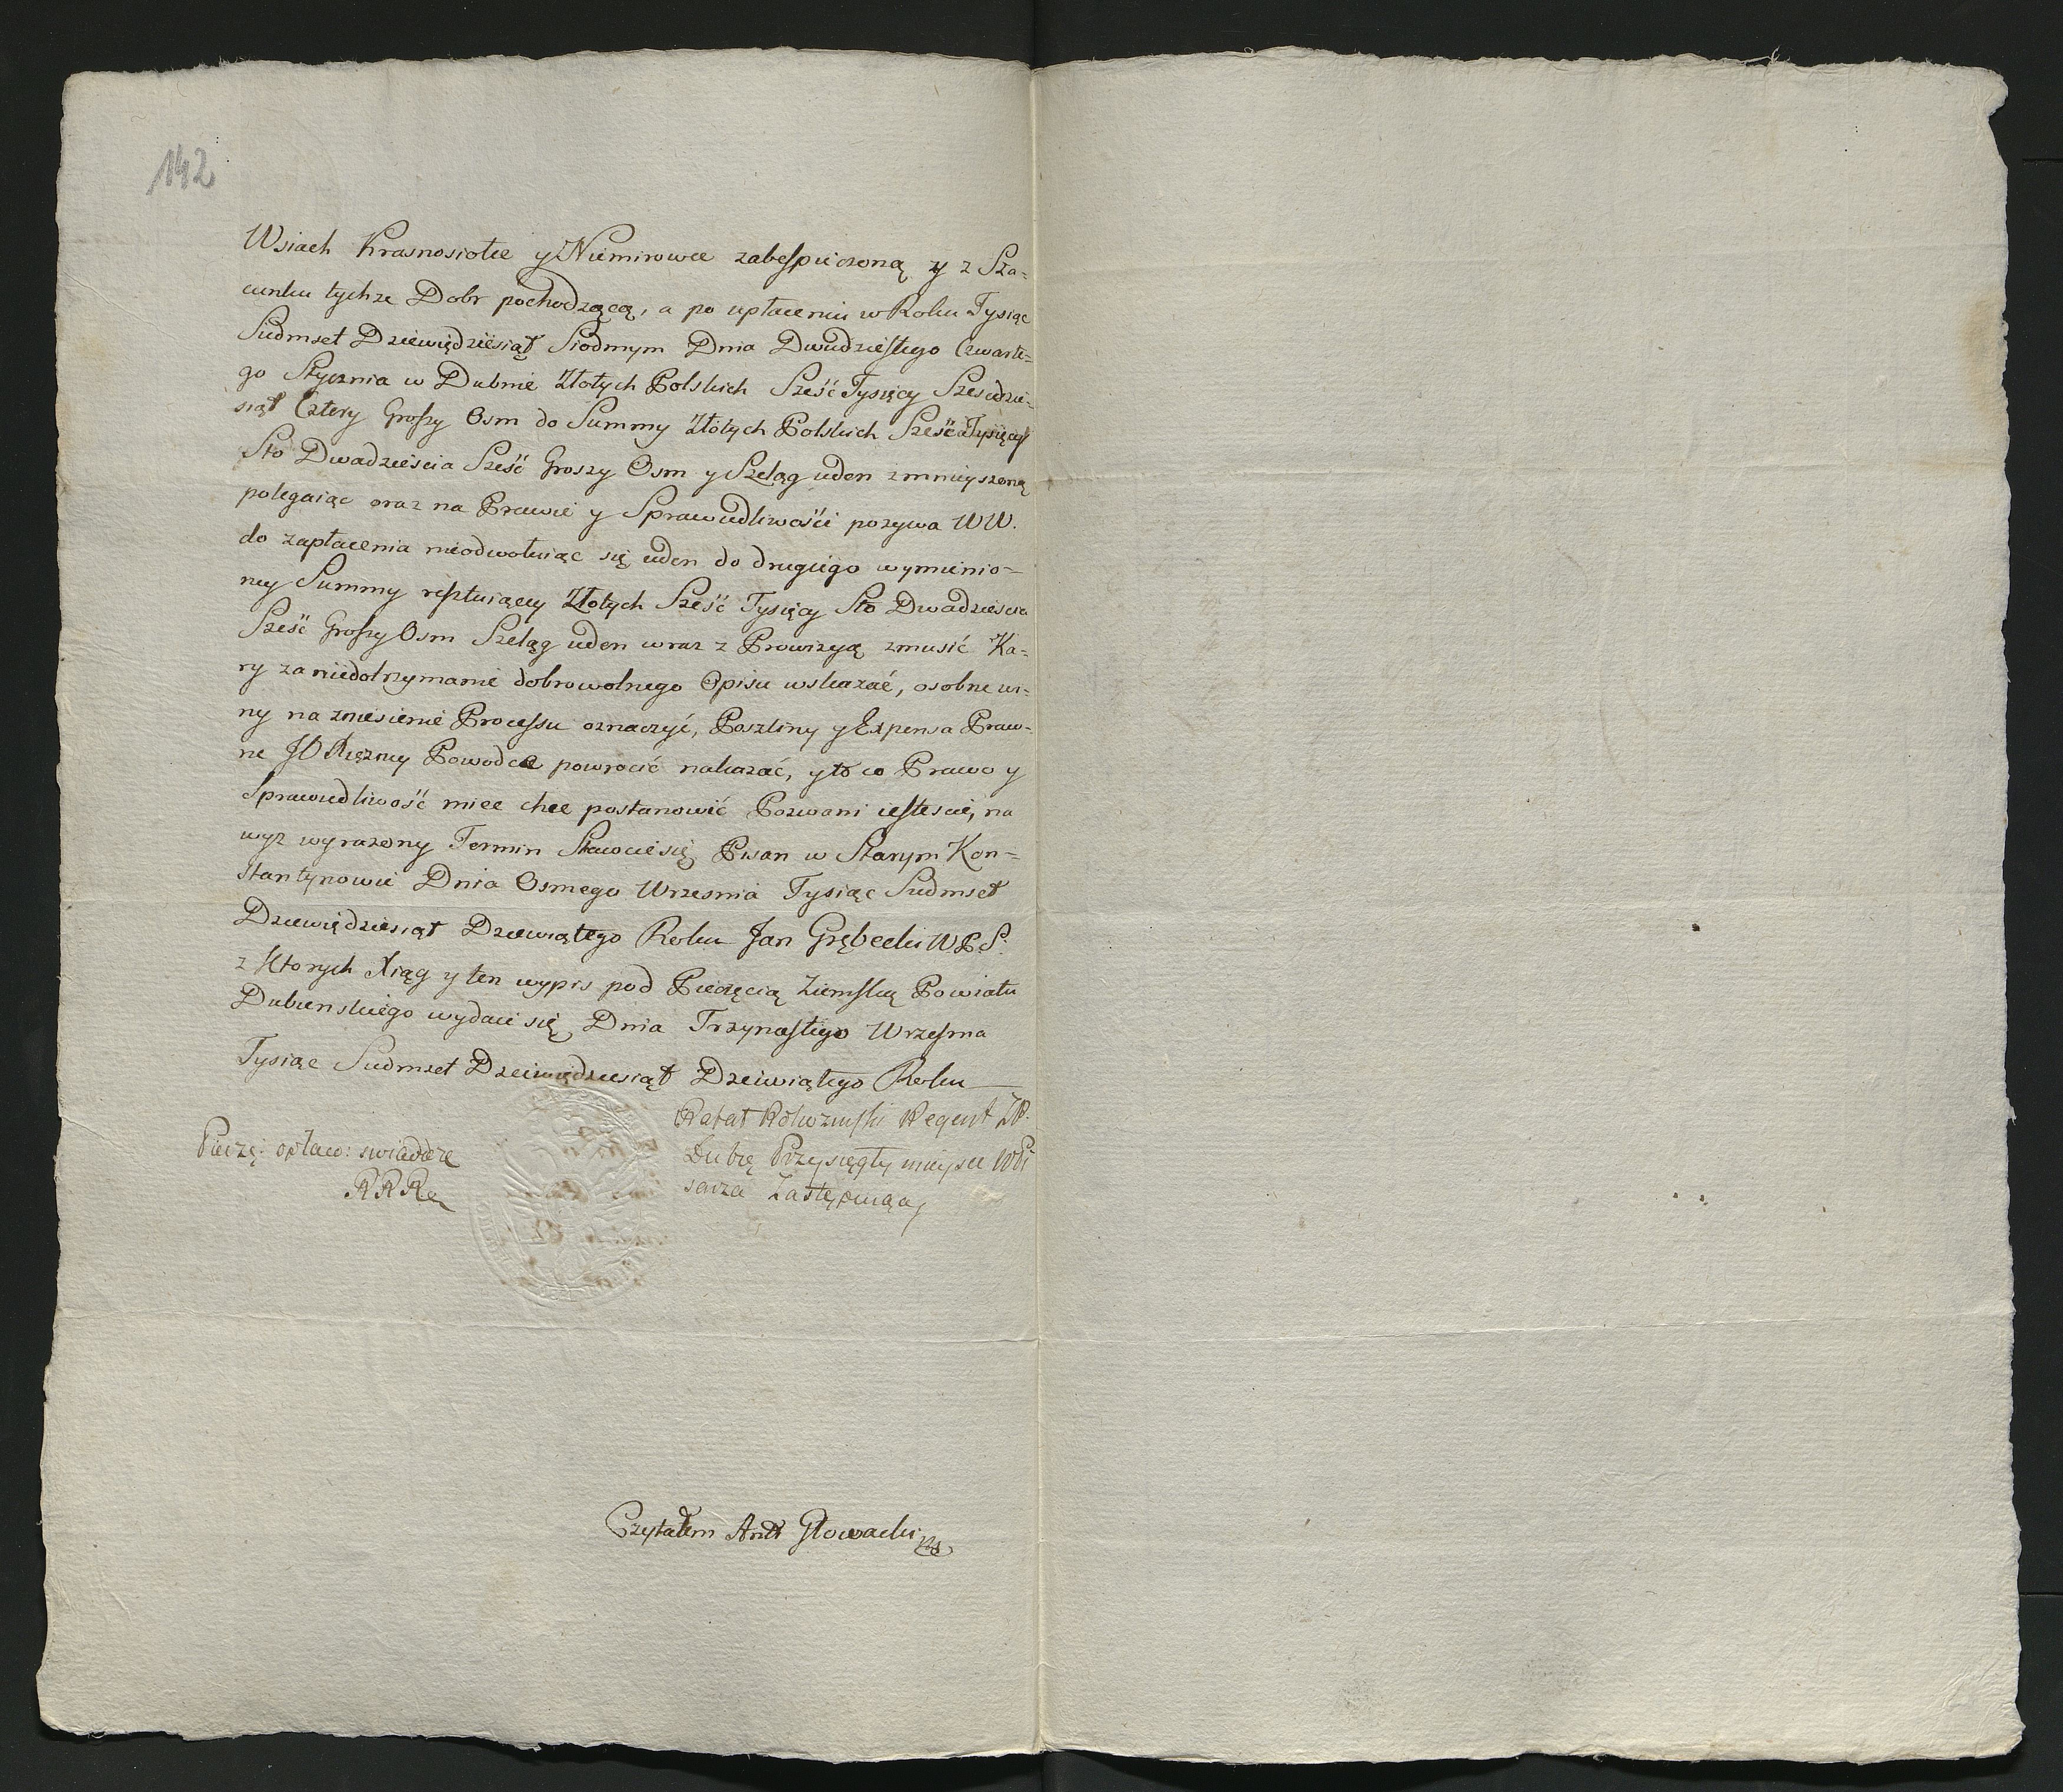 142
Wsiach Krasnosiołce y Niemirowce zabespieczoną y z Sza-
cunku tychże Dobr pochodzącą, a po upłaceniu w Roku Tysiąc
Siedmset Dziewiędziesiąt Siodmym Dnia Dwudziestego Czwarte-
go Stycznia w Dubnie Złotych Polskich Sześć Tysięcy Szesdzie-
siąt Cztery Groszy Osm do Summy Złotych Polskich Sześć Tysięcy
Sto Dwadziescia Sześć Groszy Osm y Szeląg ieden zmnieyszoną
polegaiąc oraz na Prawie y Sprawiedliwości pozywa WW.
do zapłacenia nieodwołuiąc się ieden do drugiego wymienio-
ney Summy resztuiącey Złotych Sześć Tysięcy Sto Dwadziescia
Sześć Groszy Osm Szeląg ieden wraz z Prowizyą zmusić Ka-
ry za niedotrzymanie dobrowolnego Opisu wskazać, osobne wi-
ny na zniesienie Processu oznaczyć, Poszliny y Expensa Praw-
ne JO Xiężney Powodce powrocić nakazać, y to co Prawo y
Sprawiedliwość miec chce postanowić Pozwani iestescie, na
wyż wyrażony Termin Stawcie się Pisan w Starym Kon-
stantynowie Dnia Osmego Wrzesnia Tysiąc Siedmset
Dziewiędziesiąt Dziewiątego Roku Jan Grębecki W.P.S.
z Ktorych Xiąg y ten wypis pod Pieczęcią Ziemską Powiatu
Dubienskiego wydaie się Dnia Trzynastego Wrzesnia
Tysiąc Siedmset Dziewiędziesiąt Dziewiątego Roku
Rafał Regent Z.P.
Dubię Przysięgły mieysce WPi
sarza Zastępuiący
Pieczę: opłac: swiadczę
RRR
Czytałem Ant Głowacki mp